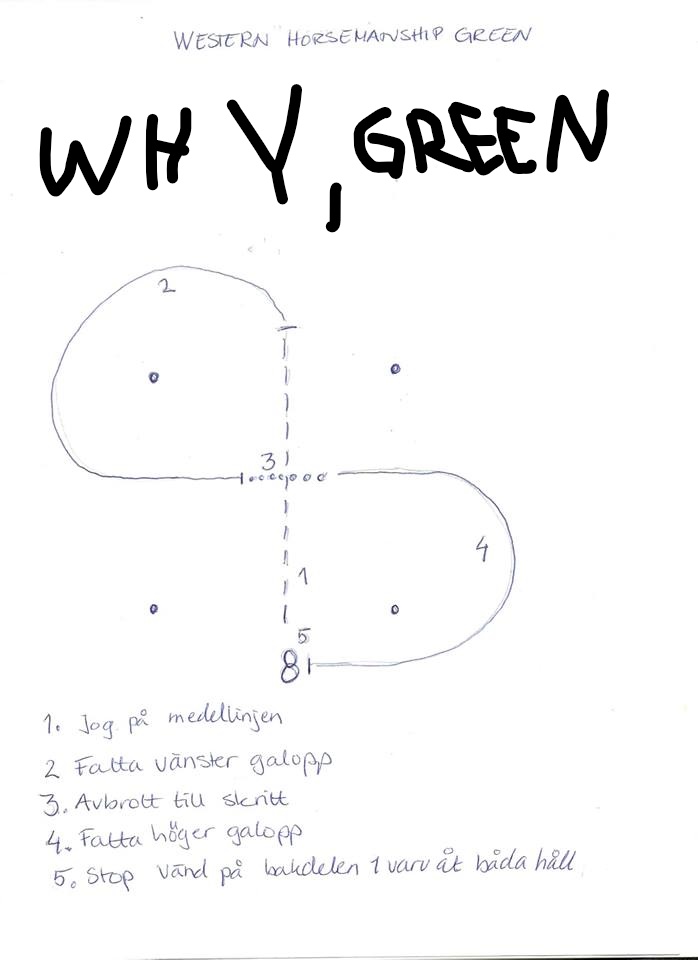 WESTERN HORSEMANSHIP GREEN
WH Y, GREEN
2
3
4
1
5
8
1. Jog på medellinjen
2 Fatta vänster galopp
3. Avbrott till skritt
4. Fatta höger galopp
5. Stop vänd på bakdelen 1 varv åt båda håll